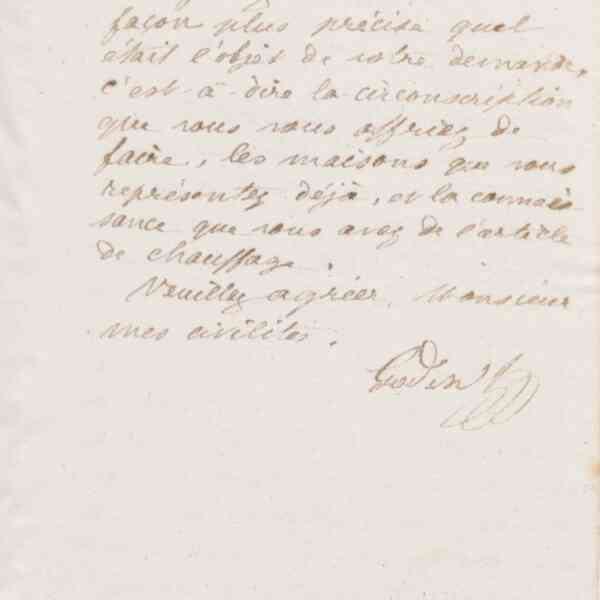 façon plus précise quel
était l'objet de votre demande,
c'est-à-dire la circonscription
que vous vous offriez de
faire, les maisons que vous
représentez déjà, et la connais
sance que vous avez de l'article
de chauffage.
Veuillez agréer, Monsieur
mes civilités.
Godin